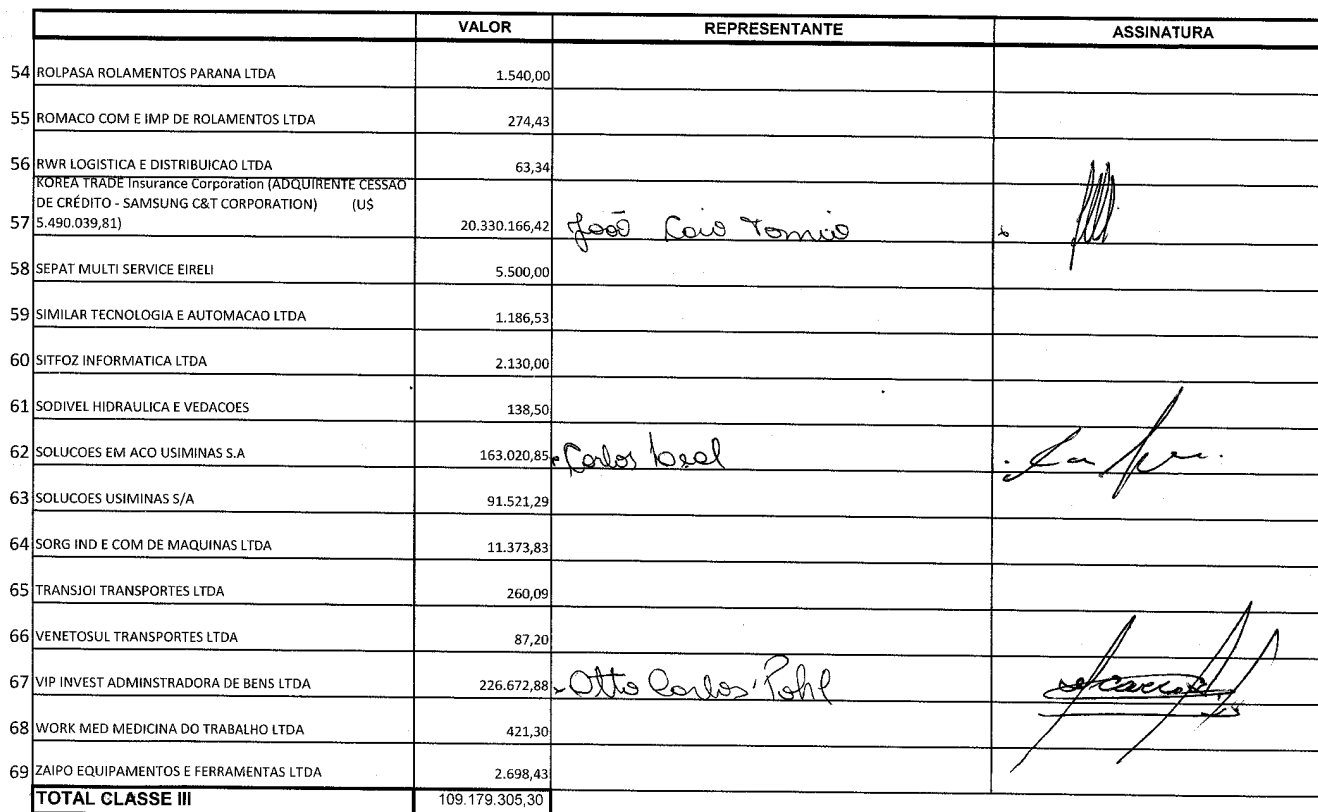 VALOR REPRESENTANTE ASSINATURA
54 ROLPASA ROLAMENTOS PARANA LTDA 1.540,00
55 ROMACO COM E IMP DE ROLAMENTOS LTDA 274,43
56 RWR LOGISTICA E DISTRIBUICAO LTDA 63,34
KOREA TRADE Insurance Corporation (ADQUIRENTE CESSAO
DE CRÉDITO - SAMSUNG C&T CORPORATION) (U$
57 5.490.039,81) 20.330.166,42 João Caio Tomio
58 SEPAT MULTI SERVICE EIRELI 5.500,00
59 SIMILAR TECNOLOGIA E AUTOMACAO LTDA 1.186,53
60 SITFOZ INFORMATICA LTDA 2.130,00
61 SODIVEL HIDRAULICA E VEDACOES 138,50
62 SOLUCOES EM ACO USIMINAS S.A 163.020,85 Carlos
63 SOLUCOES USIMINAS S/A 91.521,29
64 SORG IND E COM DE MAQUINAS LTDA 11.373,83
65 TRANSJOI TRANSPORTES LTDA 260,09
66 VENETOSUL TRANSPORTES LTDA 87,20
67 VIP INVEST ADMINSTRADORA DE BENS LTDA 226.672,88 Otto Carlos Pohl
68 WORK MED MEDICINA DO TRABALHO LTDA 421,30
69 ZAIPO EQUIPAMENTOS E FERRAMENTAS LTDA 2.698,43
TOTAL CLASSE III 109.179.305,30